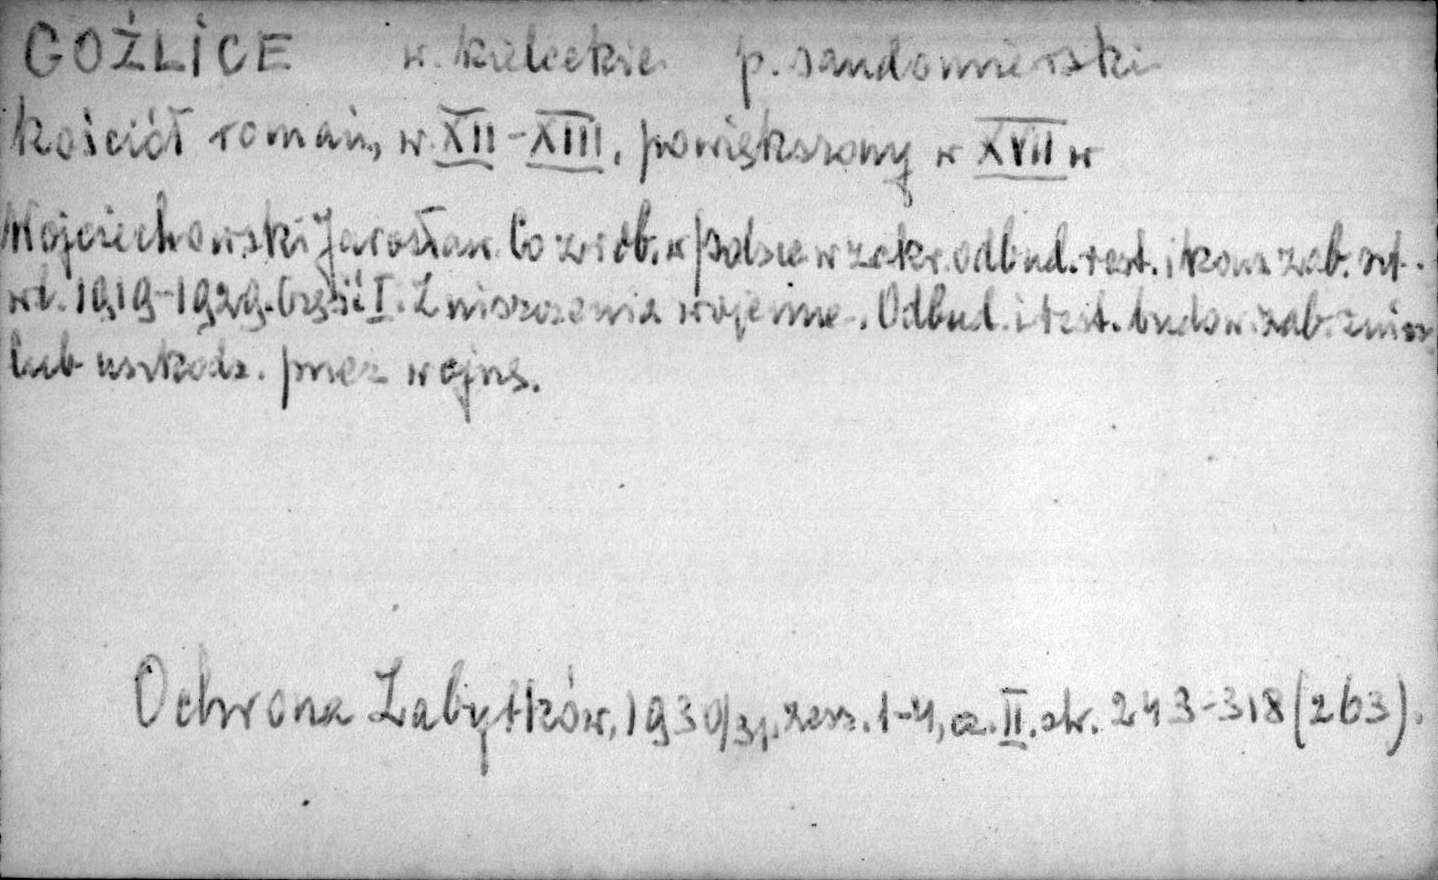 GOŹLICE w. kieleckie p. sandomierski
kościół romań, w. XII-XIII, powiększony w XVII w
Wojciechowski Jarosław. Co zrob. w Polsce w zakr. odbud. rest. i kons. zab. szt.
w l. 1919-1929. Część I. Zniszczenia wojenne. Odbud. i rest. budow. zab. zniszcz
lub uszkodz. przez wojnę.
Ochrona Zabytków, 1930/31, zesz. 1-4, cz. II, str. 243-318 (263).